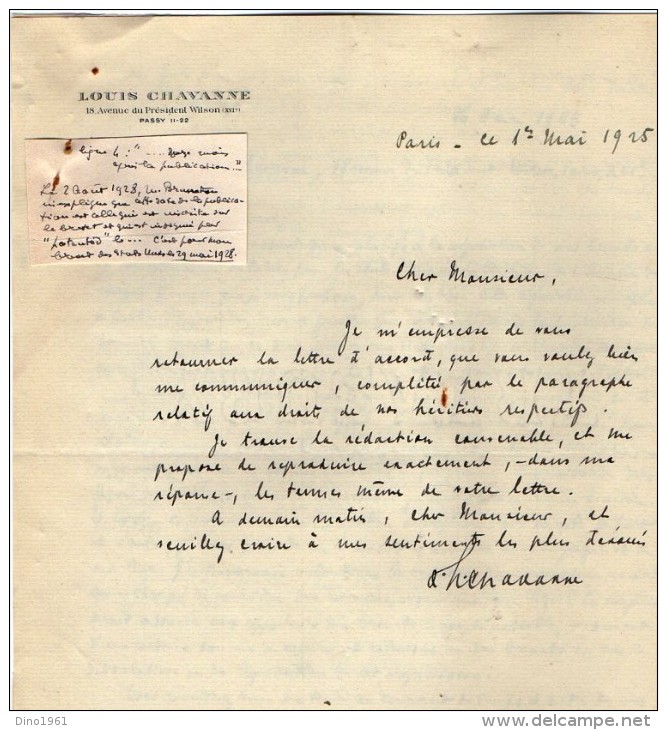 LOUIS CHAVANNE
18, Avenue du Président Wilson (XVIe)
PASSY 11-22
Paris - le 1er Mai 1925
ligne 4 : "... mois
qui la publication..."
Le 2 Août 1928, M.
m'explique que cette date de la publica-
tion est celle qui est inscrite sur
le brevet et qui est marqué par
"patented" le ... C'est pour mon
brevet des Etats Unis le 29 mai 1928.
Cher Monsieur,
Je m'empresse de vous
retourner la lettre d'accord, que vous voulez bien
me communiquer, complétée par le paragraphe
relatif aux droits de nos héritiers respectifs.
Je trouve la rédaction convenable, et me
propose de reproduire exactement, -dans ma
réponse-, les termes même de votre lettre.
A demain matin, cher Monsieur, et
veuillez croire à mes sentiments les plus dévoués
L. Chavanne
Dino1961
www.delcampe.net